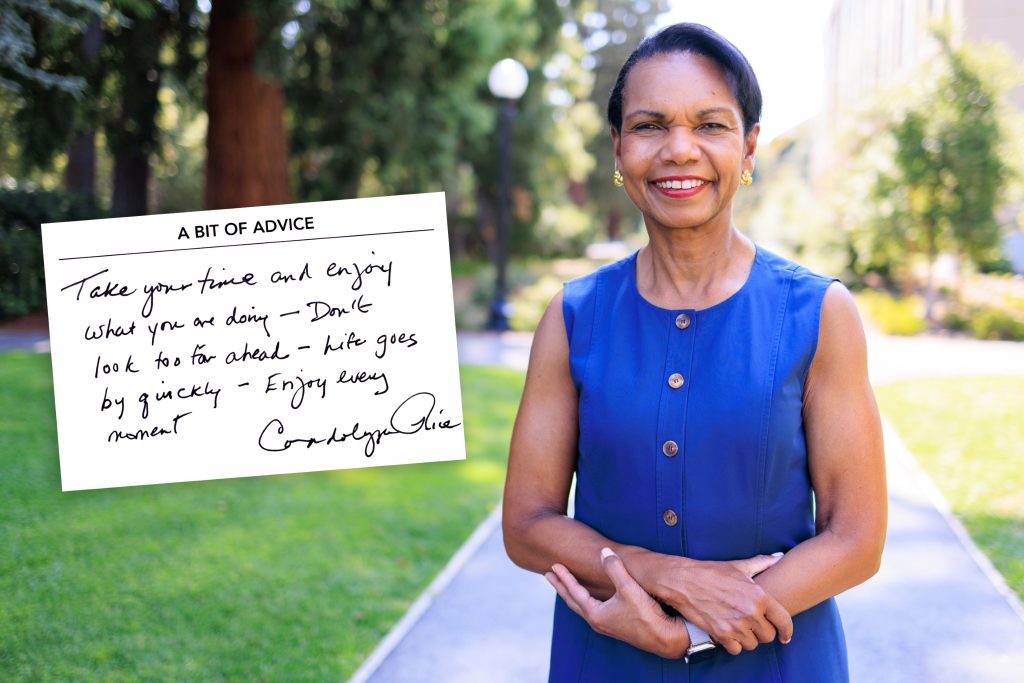 A BIT OF ADVICE
Take your time and enjoy
what you are doing – Don't
look too far ahead – Life goes
by quickly – Enjoy every
moment
Condoleezza Rice